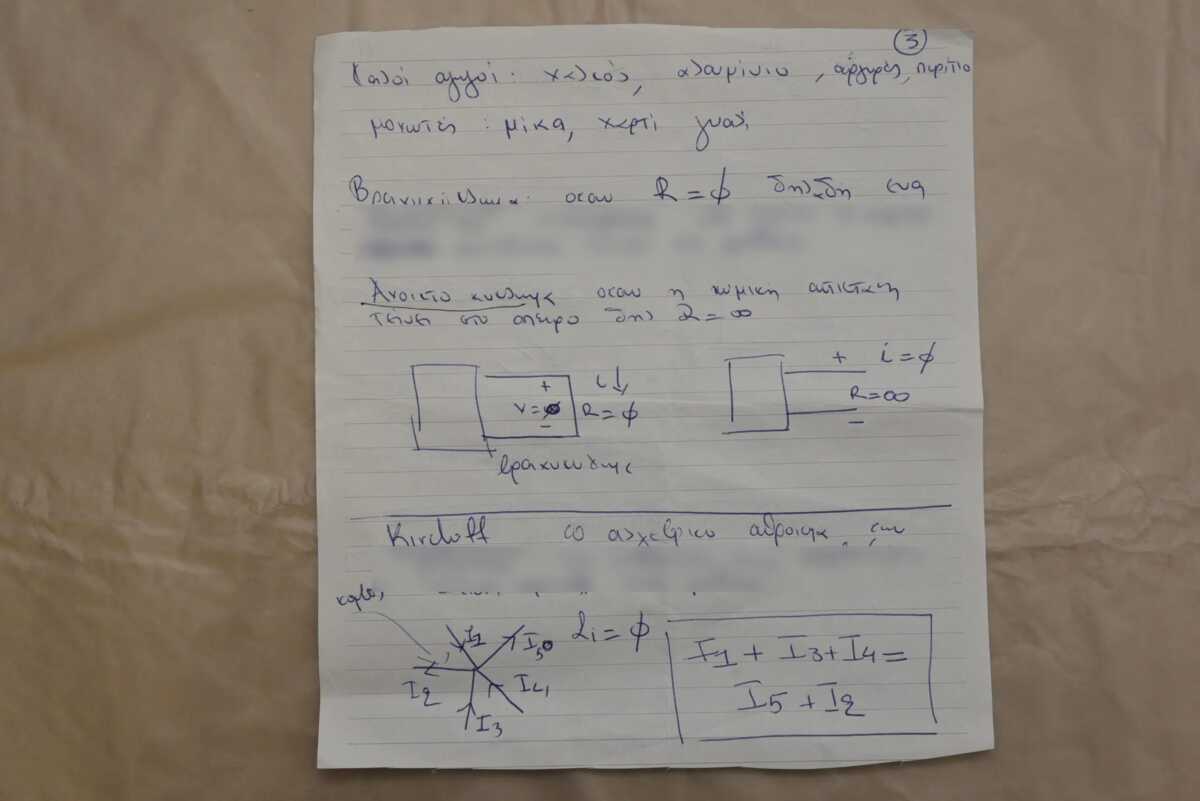 3
Καλοί αγωγοί: χαλκός, αλουμίνιο, άργυρος, πυρίτιο
μονωτές: μίκα, χαρτί γυαλί
Βραχυκύκλωμα: οταν R=φ δηλαδή ενα
Ανοικτο κυκλωμα οταν η ωμικη αντισταση
τείνει στο απειρο δηλ R=∞
+ i R=φ
V=φ
-
βραχυκυκλωμα
+ i=φ
R=∞
-
Kirchoff το αλγεβρικο αθροισμα των
κομβος
I1 I5 Σi=φ
I2 I4
I3
I1 + I3+I4=
I5+I2